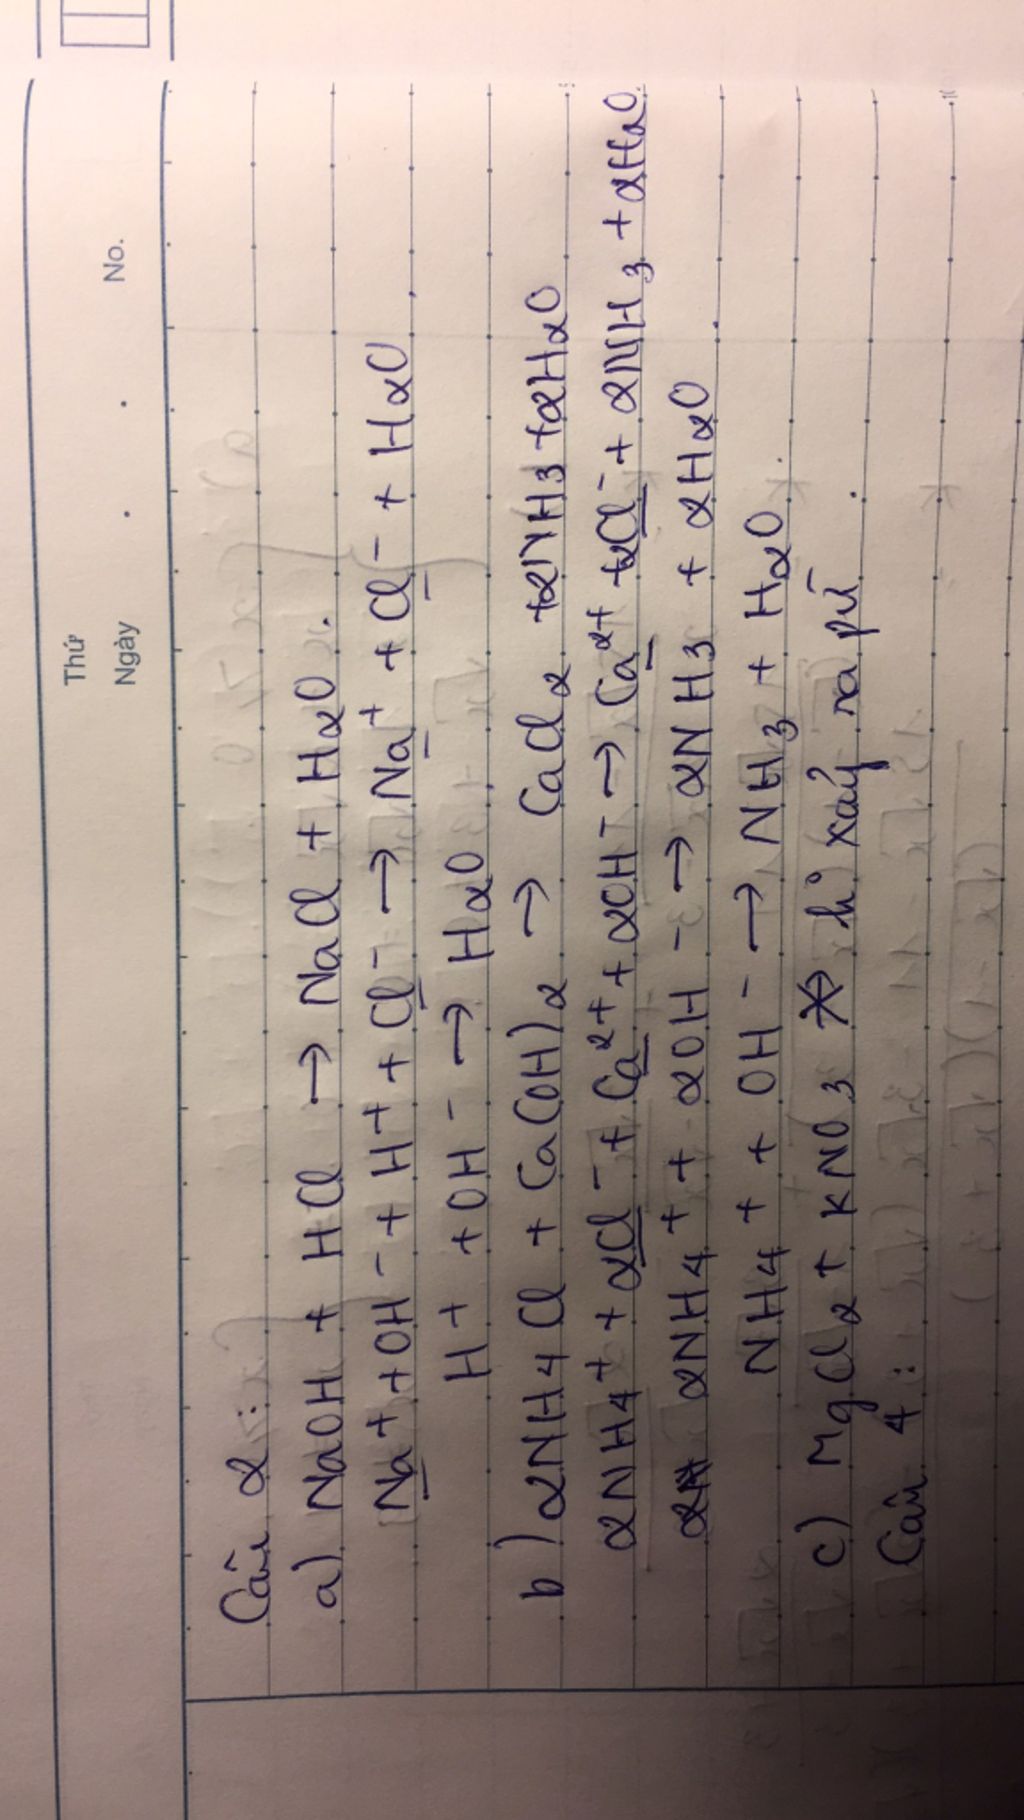 Thứ
Ngày . . No.
Câu 2:
a) NaOH + HCl → NaCl + H2O.
Na+ + OH- + H+ + Cl- → Na+ + Cl- + H2O
H+ + OH- → H2O
b) 2NH4Cl + Ca(OH)2 → CaCl2 + 2NH3 + 2H2O
2NH4+ + 2Cl- + Ca2+ + 2OH- → Ca2+ + 2Cl- + 2NH3 + 2H2O.
2NH4+ + 2OH- → 2NH3 + 2H2O.
NH4+ + OH- → NH3 + H2O.
c) MgCl2 + KNO3 ↛ xảy ra pứ.
Câu 4: